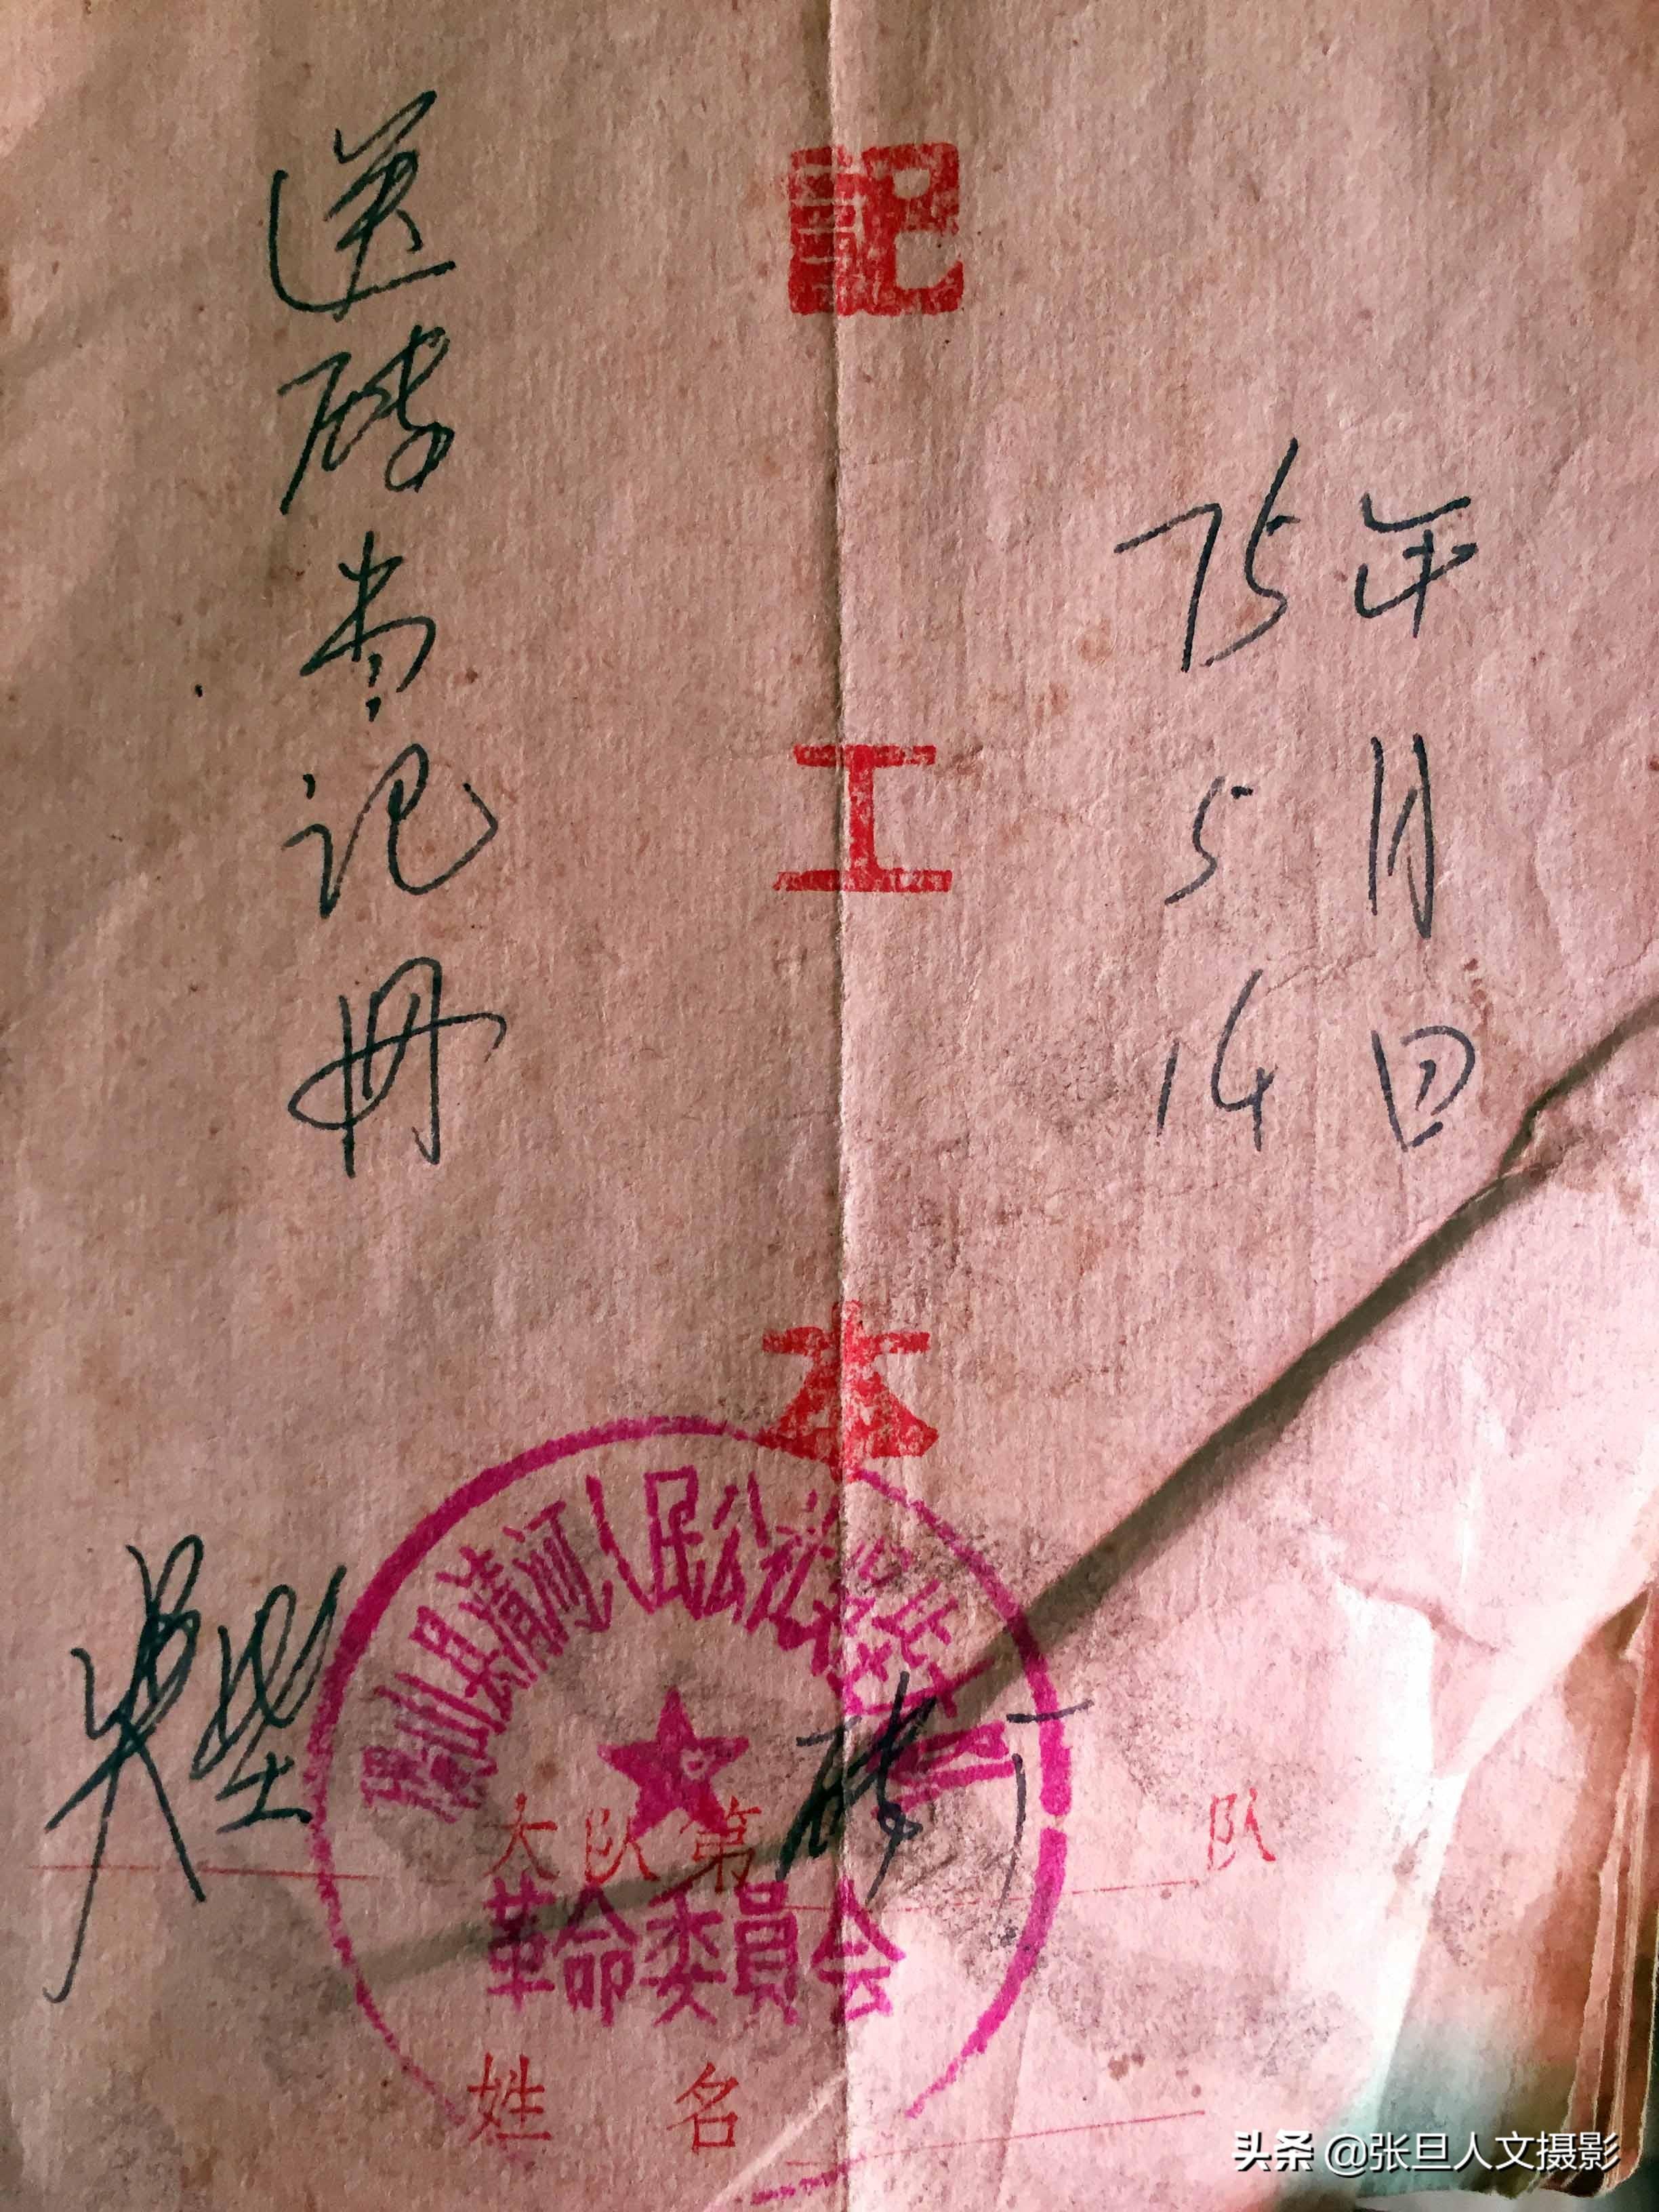 記工本
75年
5月
14日
送砖 记册
山县清河人民公社
革命委員会
大队第 砖厂 队
姓 名
头条 @张旦人文摄影